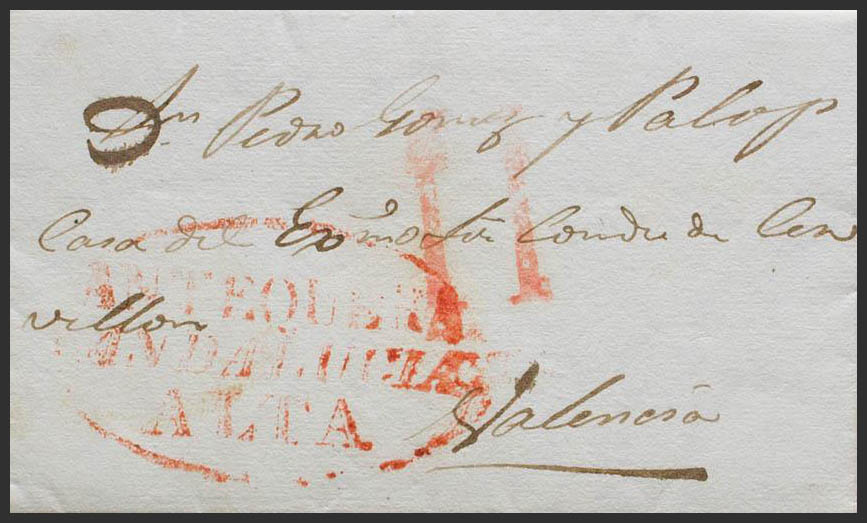 Dn Pedro Gomez y Palop
Casa del Exmo Sor Conde de Cer
vellon
Valencia
11
ANTEQUERA
ANDALUCIA
ALTA